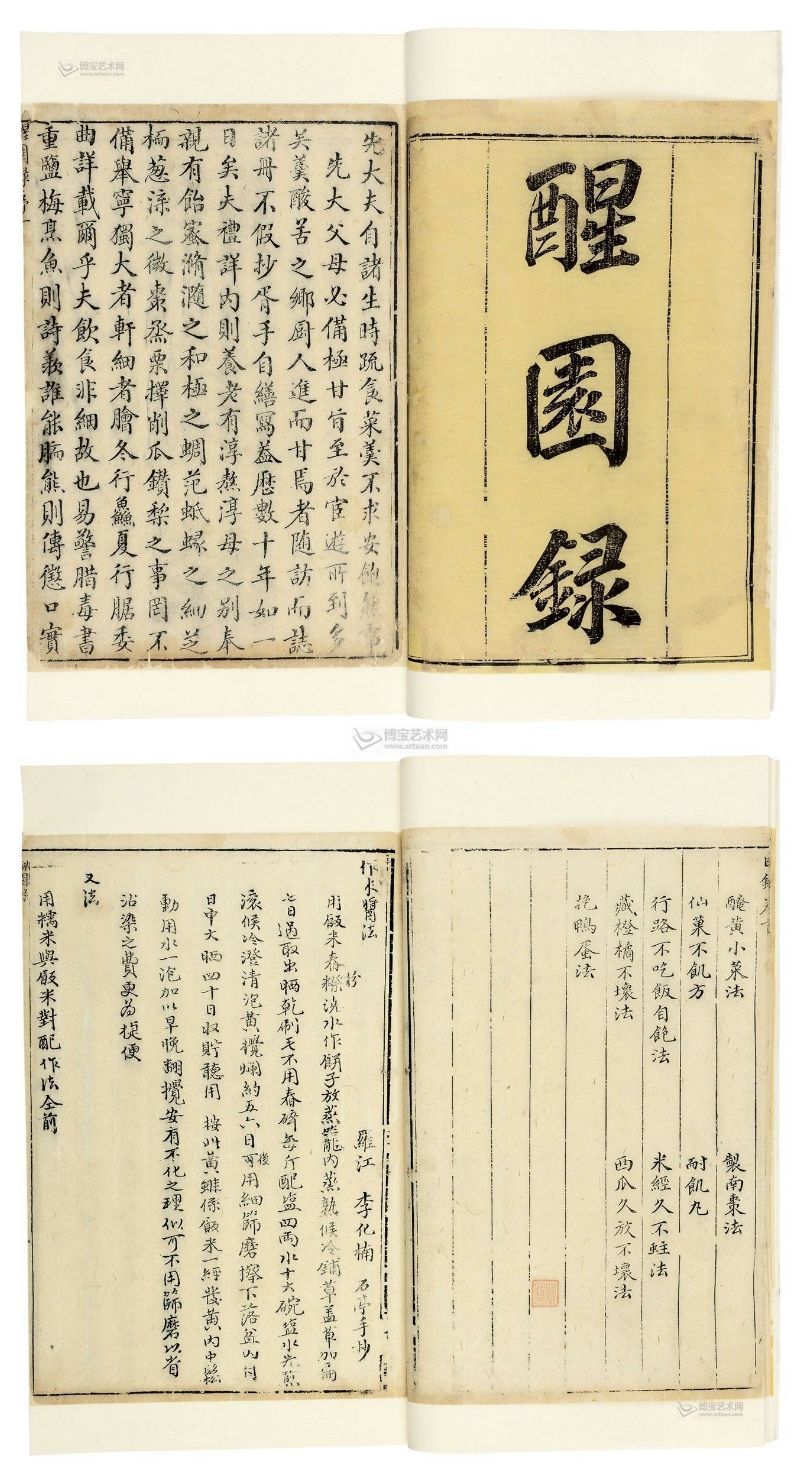 醒園録
先大夫自諸生時疏食菜羹不求安飽然事
先大父母必備極甘旨至於宦遊所到多
吴羹酸苦之鄉厨人進而甘焉者随訪而誌
諸册不假抄胥手自繕寫葢歷數十年如一
日矣夫禮詳内則養老有淳熬淳母之别奉
親有飴蜜滫瀡之和極之蜩范蚳蝝之細芝
栭葱渿之微棗烝栗擇削瓜鑽梨之事罔不
備舉寧獨大者軒細者膾冬行鱻夏行腒委
曲詳載爾乎夫飲食非細故也易警腊毒書
重鹽梅烹魚則詩羨誰能胹熊則傳懲口實
醃黄小菜法 製南棗法
仙菓不飢方 耐飢丸
行路不吃飯自飽法 米經久不蛀法
藏橙橘不壞法 西瓜久放不壞法
挽鴨蛋法
作米醬法
羅江 李化楠 石亭手抄
用飯米舂粉澆水作餅子放蒸籠内蒸熟候冷鋪草盖草加扁
七日過取出晒乾刷毛不用舂碎每斤配塩四兩水十六碗塩水先煎
滚候冷澄清泡黄攪爛約五六日後可用細篩磨擦下落盆内付
日中大晒四十日收貯聽用 按此黄雖係飯米一經發黄内中鬆
動用水一泡加以早晚翻攪安有不化之理似可不用篩磨以省
沾染之費更為捷便
又法
用糯米與飯米對配作法仝前
博宝艺术网
www.artxun.com
博宝艺术网
www.artxun.com
博宝艺术网
www.artxun.com